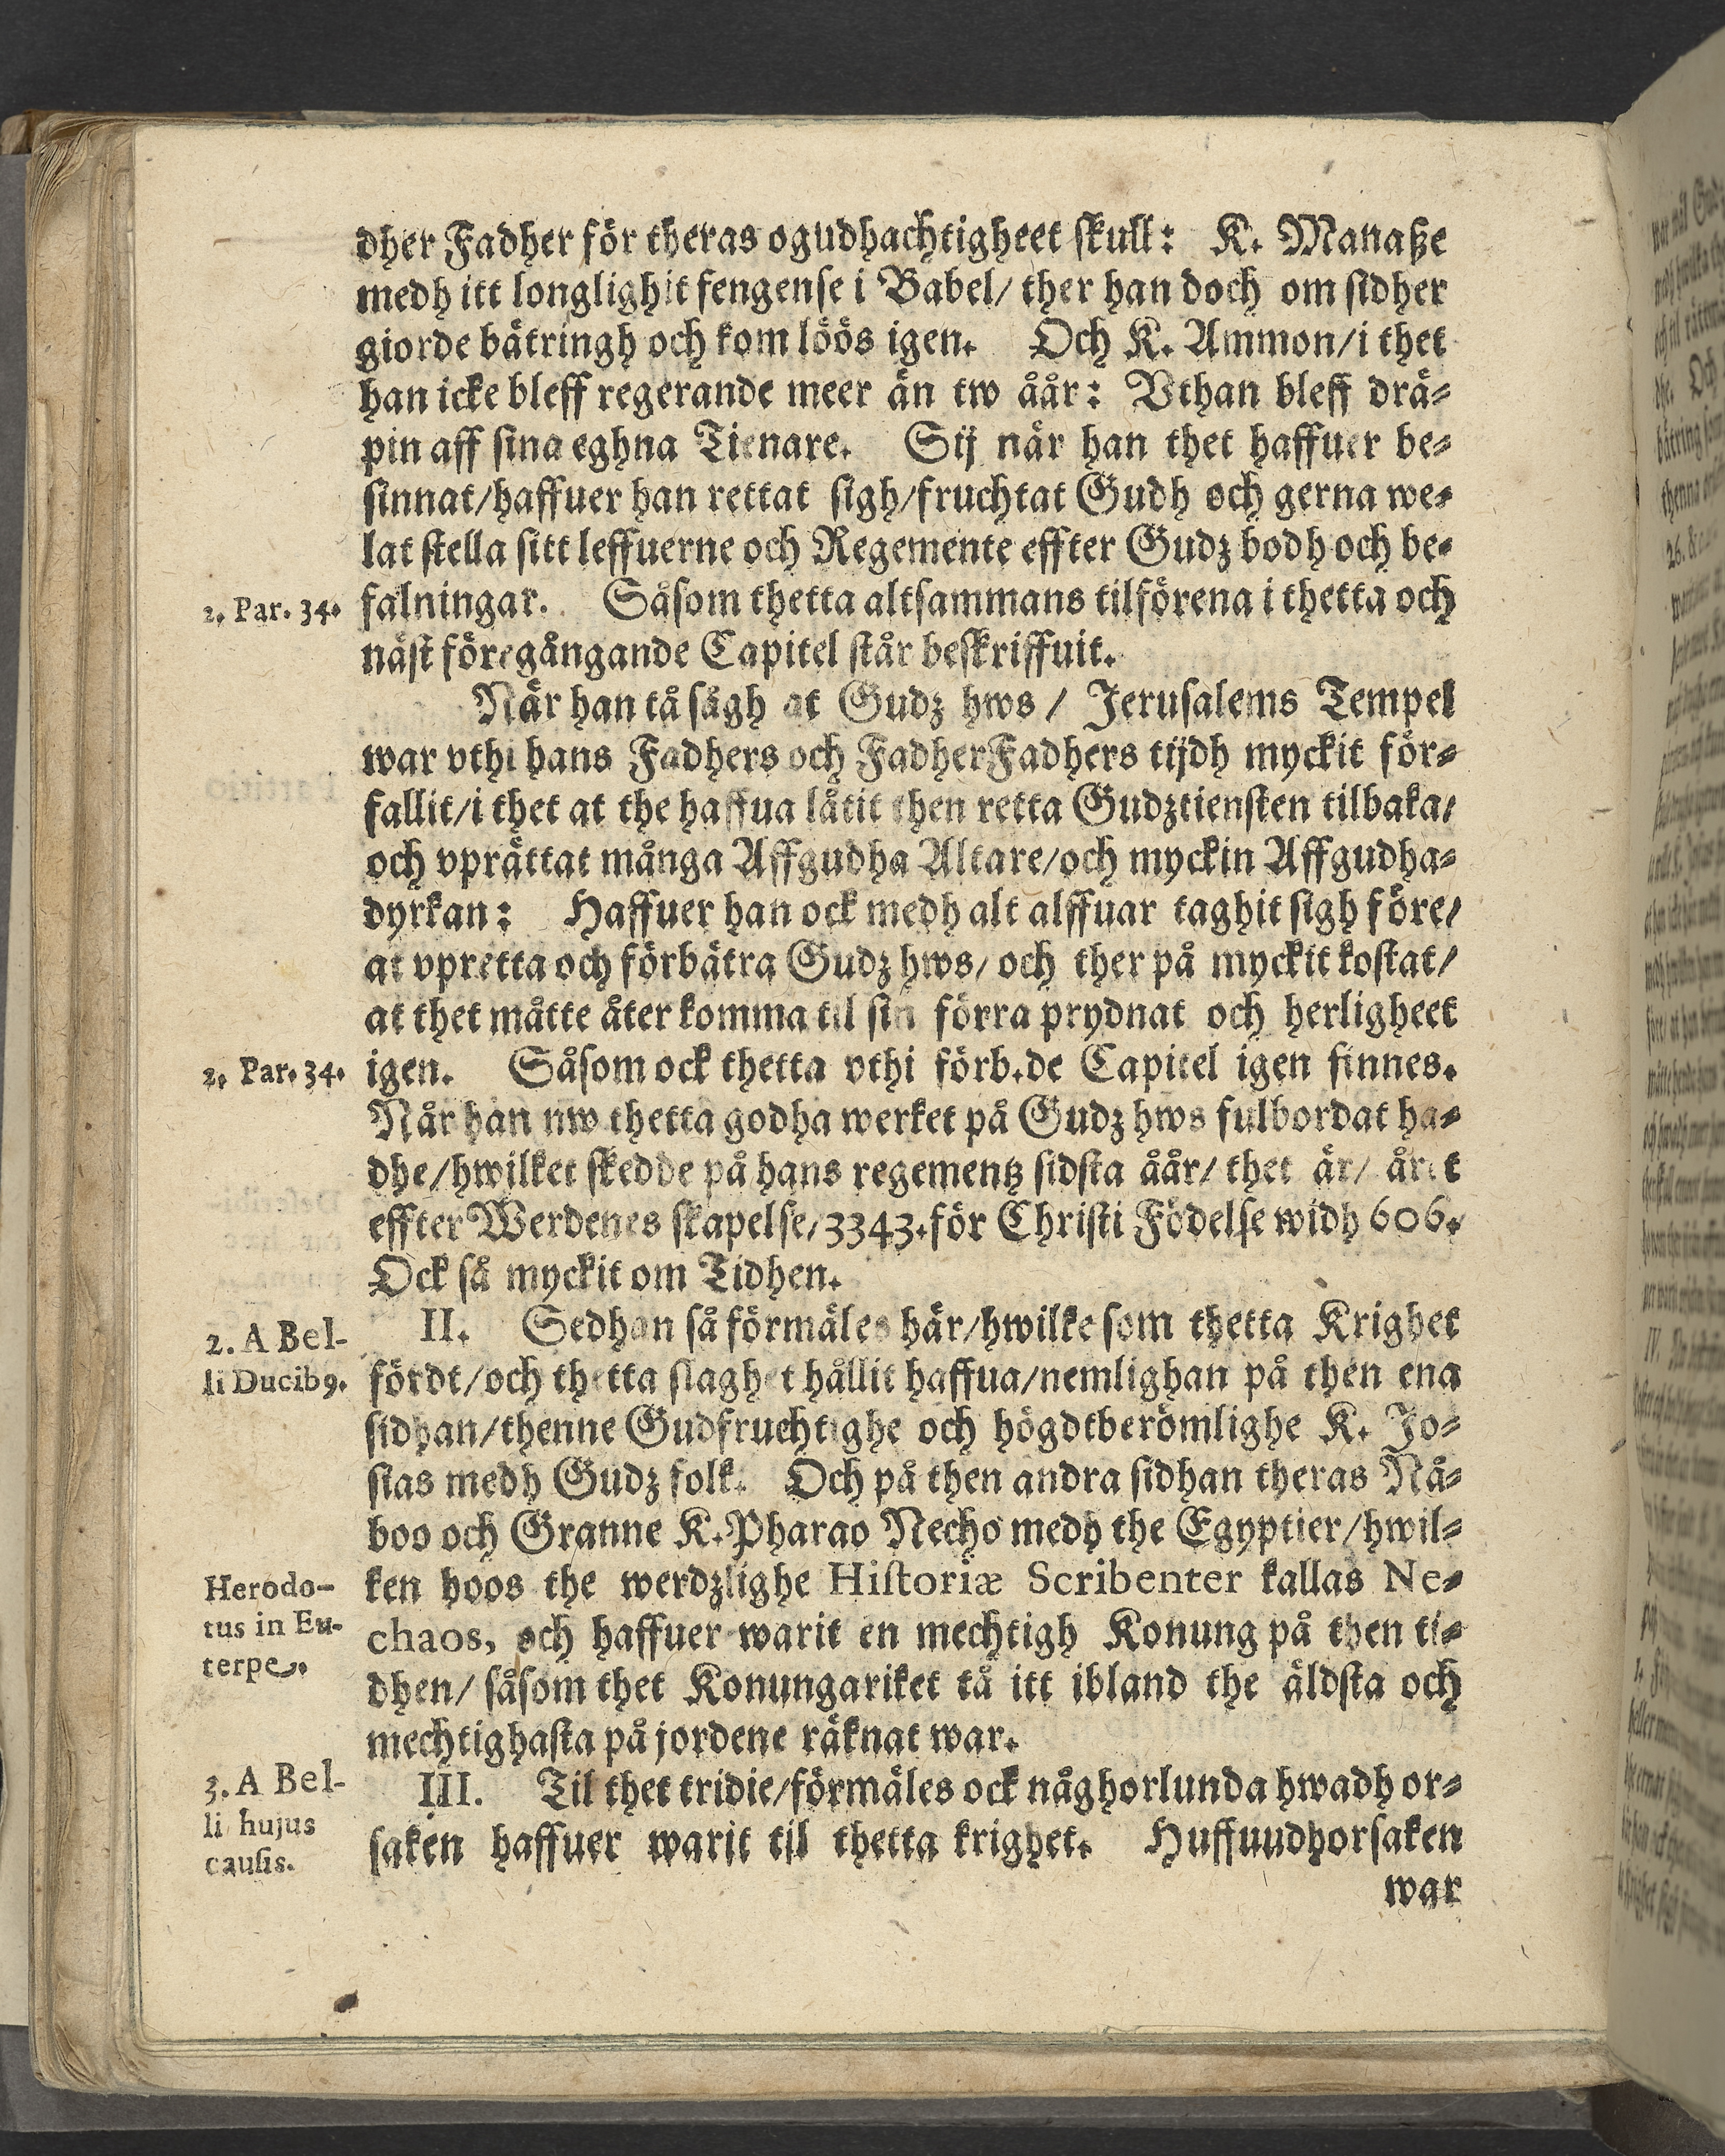 dher Fadher för theras ogudhachtigheet skull: K. Manaße
medh itt longlighit fengense i Babel/ ther han doch om sidher
giorde bätringh och kom löös igen. Och K. Ammon/i thet
han icke bleff regerande meer än tw åår: Vthan bleff drä-
pin aff sina eghna Tienare. Sij när han thet haffuer be-
sinnat/haffuer han rettat sigh/fruchtat Gudh och gerna we-
lat stella sitt leffuerne och Regemente effter Gudz bodh och be-
2. Par. 34. falningar. Såsom thetta altsammans tilförena i thetta och
näst föregångande Capitel står beskriffuit.
När han tå sågh at Gudz hws / Jerusalems Tempel
war vthi hans Fadhers och FadherFadhers tijdh myckit för-
fallit/i thet at the haffua låtit then retta Gudztiensten tilbaka/
och vprättat många Affgudha Altare/och myckin Affgudha-
dyrkan: Haffuer han ock medh alt alffuar taghit sigh före/
at vpretta och förbätra Gudz hws/ och ther på myckit kostat/
at thet måtte åter komma til sin förra prydnat och herligheet
2. Par. 34. igen. Såsom ock thetta vthi förb.de Capitel igen finnes.
Når han nw thetta godha werket på Gudz hws fulbordat ha-
dhe/hwilket skedde på hans regementz sidsta åår/ thet är/ året
effter Werdenes skapelse/3343.för Christi Födelse widh 606.
Ock så myckit om Tidhen.
2. A Bel- II. Sedhan så förmäles här/hwilke som thetta Krighet
li Ducib9. fördt/och thetta slaghet hållit haffua/nemlighan på then ena
sidhan/thenne Gudfruchtighe och högdtberömlighe K. Jo-
sias medh Gudz folk. Och på then andra sidhan theras Nå-
boo och Granne K.Pharao Necho medh the Egyptier/hwil-
Herodo- ken hoos the werdzlighe Historiæ Scribenter kallas Ne-
tus in Eu- chaos, och haffuer warit en mechtigh Konung på then ti-
terpe. dhen/ såsom thet Konungariket tå itt ibland the äldsta och
mechtighasta på jordene räknat war.
3. A Bel- III. Til thet tridie/förmäles ock någhorlunda hwadh or-
li hujus saken haffuer warit til thetta krighet. Huffuudhorsaken
causis.
war